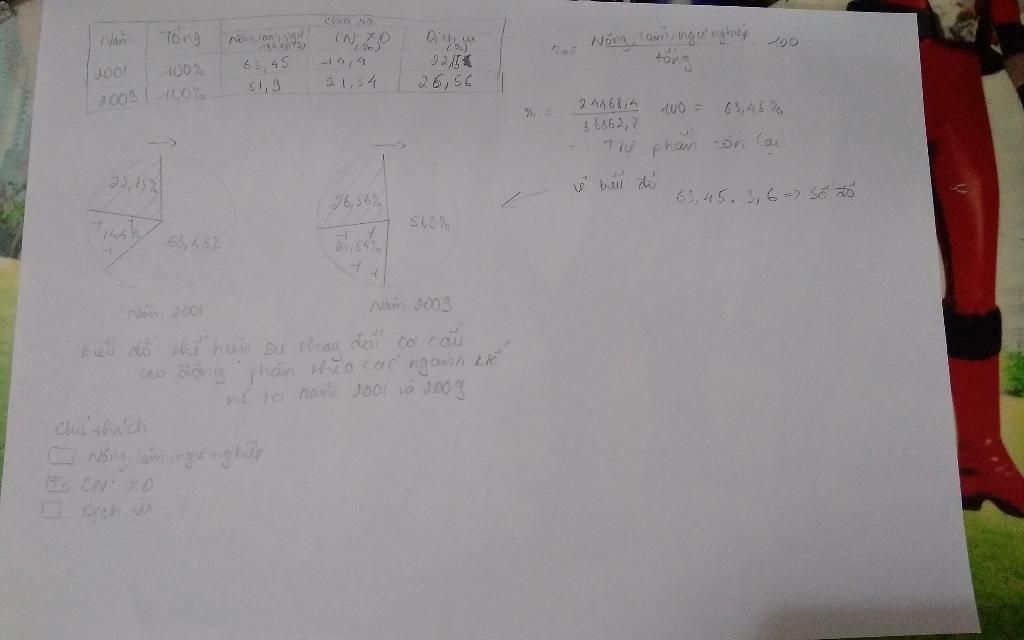 chia ra
Năm Tổng Nông, lâm, ngư nghiệp (%) CN. XD (%) Dịch vụ (%)
2001 100% 63,45 14,4 22,15
2009 100% 51,9 21,54 26,56
% = Nông, lâm, ngư nghiệp / tổng . 100
% = 24468,4 / 38562,7 . 100 = 63,45%
Thị phần còn lại
vẽ biểu đồ
63,45 . 3,6 => số đo
22,15%
14,4%
63,45%
Năm 2001
26,56%
21,54%
51,9%
Năm 2009
Biểu đồ thể hiện sự thay đổi cơ cấu
lao động phân theo các ngành kinh
tế ta năm 2001 và 2009
Chú thích
Nông, lâm, ngư nghiệp
CN. XD
Dịch vụ